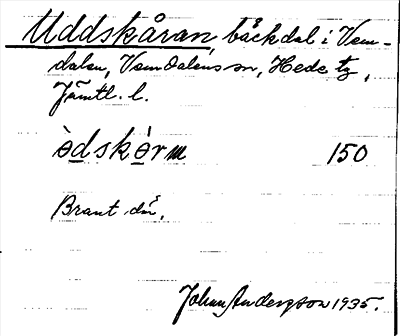 Uddskåran, bäckdal i Vem-
dalen, Vemdalens sn, Hede tg,
Jämtl. l.
150
Brant där,
Johan Andersson 1935.